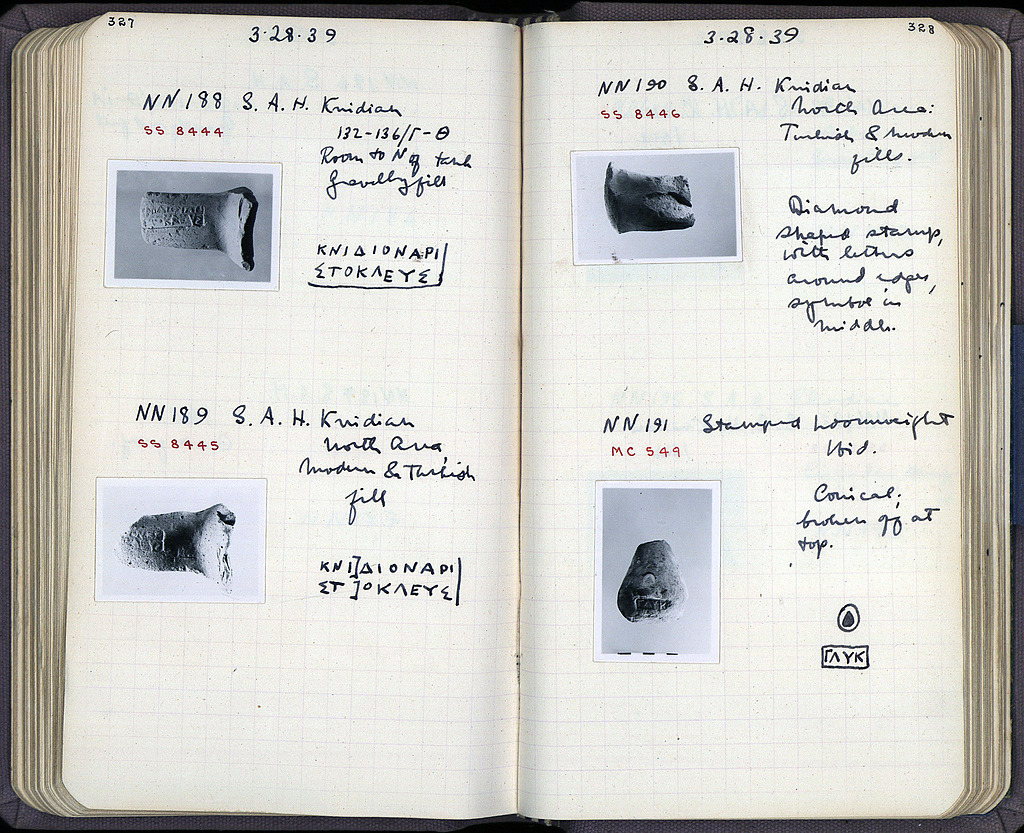 327
3-28-39
NN 188 S. A. H. Knidian
SS 8444
132-136/Γ-Θ
Room to N of tank
gravelly fill
ΚΝΙΔΙΟΝΑΡΙ
ΣΤΟΚΛΕΥΣ
NN 189 S. A. H. Knidian
SS 8445
North Area
Modern & Turkish
fill
ΚΝΙ]ΔΙΟΝΑΡΙ
ΣΤ]ΟΚΛΕΥΣ
328
3-28-39
NN 190 S. A. H. Knidian
SS 8446
North Area:
Turkish & modern
fills.
Diamond
shaped stamp,
with letters
around edges,
symbol in
middle.
NN 191 Stamped Loomweight
MC 549
Ibid.
Conical;
broken off at
top.
ΓΛΥΚ